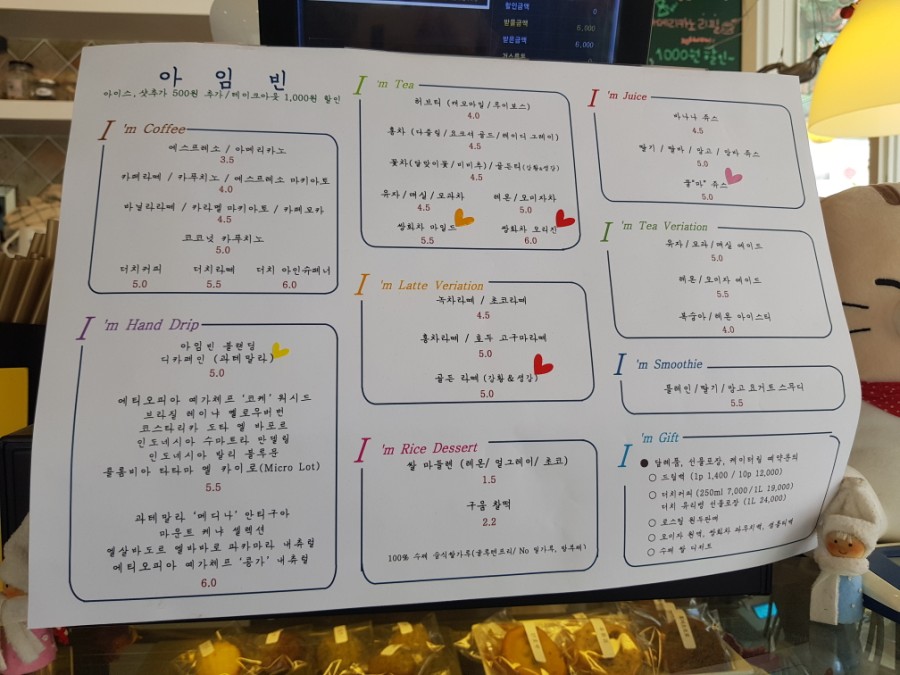 할인금액 0
받을금액 6,000
받은금액 6,000
1000원 할인~
아 임 빈
아이스, 샷추가 500원 추가/테이크아웃 1,000원 할인
I'm Coffee
에스프레소 / 아메리카노
3.5
카페라떼 / 카푸치노 / 에스프레소 마키아토
4.0
바닐라라떼 / 카라멜 마키아토 / 카페모카
4.5
코코넛 카푸치노
5.0
더치커피 더치라떼 더치 아인슈페너
5.0 5.5 6.0
I'm Hand Drip
아임빈 블렌딩
디카페인 (과테말라)
5.0
에티오피아 예가체프 '코케' 워시드
브라질 레이냐 옐로우버번
코스타리카 도타 엘 바포르
인도네시아 수마트라 만델링
인도네시아 발리 블루문
콜롬비아 타타마 엘 카이로(Micro Lot)
5.5
과테말라 '메디나' 안티구아
마운트 케냐 셀렉션
엘살바도르 엘바바로 파카마라 내츄럴
에티오피아 예가체프 '콩가' 내츄럴
6.0
I'm Tea
허브티 (캐모마일/루이보스)
4.0
홍차 (다즐링/요크셔 골드/레이디 그레이)
4.5
꽃차(달맞이꽃/비비추)/골든티(강황&생강)
4.5
유자/매실/모과차 레몬/오미자차
4.5 5.0
쌍화차 마일드 쌍화차 오리진
5.5 6.0
I'm Latte Veriation
녹차라떼 / 초코라떼
4.5
홍차라떼 / 호두 고구마라떼
5.0
골든 라떼 (강황&생강)
5.0
I'm Rice Dessert
쌀 마들렌 (레몬/ 얼그레이/ 초코)
1.5
구움 찰떡
2.2
100% 수제 습식쌀가루(글루텐프리/ No 밀가루,
I'm Juice
바나나 쥬스
4.5
딸기 / 딸바 / 망고 / 망바 쥬스
5.0
쥬스
5.0
I'm Tea Veriation
유자 / 모과 / 매실 에이드
5.0
레몬 / 오미자 에이드
5.5
복숭아/레몬 아이스티
4.0
I'm Smoothie
플레인/딸기/망고 요거트 스무디
5.5
I'm Gift
● 답례품, 선물포장, 케이터링 예약문의
○ 드립백 (1p 1,400 / 10p 12,000)
○ 더치커피 (250ml 7,000/1L 19,000)
더치 유리병 선물포장 (1L 24,000)
○ 로스팅 원두판매
○ 오미자 원액, 쌍화차 파우치팩,
○ 수제 쌀 디저트